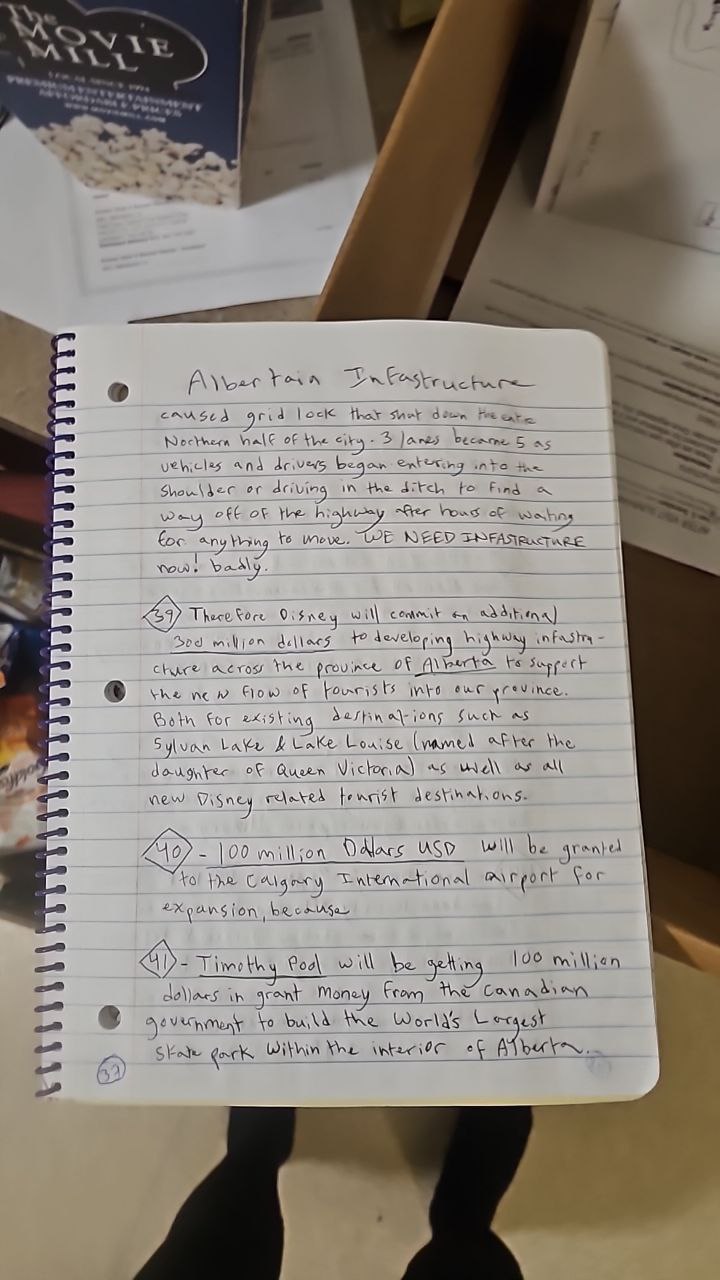 The
MOVIE
MILL
LOCAL SINCE 1994
PREMIUM ENTERTAINMENT
AFFORDABLE PRICES
Albertain Infastructure
caused grid lock that shut down the entire
Northern half of the city. 3 lanes became 5 as
vehicles and drivers began entering into the
shoulder or driving in the ditch to find a
way off of the highway after hours of waiting
for anything to move. WE NEED INFASTRUCTURE
now! badly.
39 Therefore Disney will commit an additional
300 million dollars to developing highway infastru-
cture across the province of Alberta to support
the new flow of tourists into our province.
Both for existing destinations such as
Sylvan Lake & Lake Louise (named after the
daughter of Queen Victoria) as well as all
new Disney related tourist destinations.
40 - 100 million Dollars USD will be granted
to the Calgary International airport for
expansion, because
41 - Timothy Pool will be getting 100 million
dollars in grant money from the Canadian
government to build the World's Largest
skate park within the interior of Alberta.
37